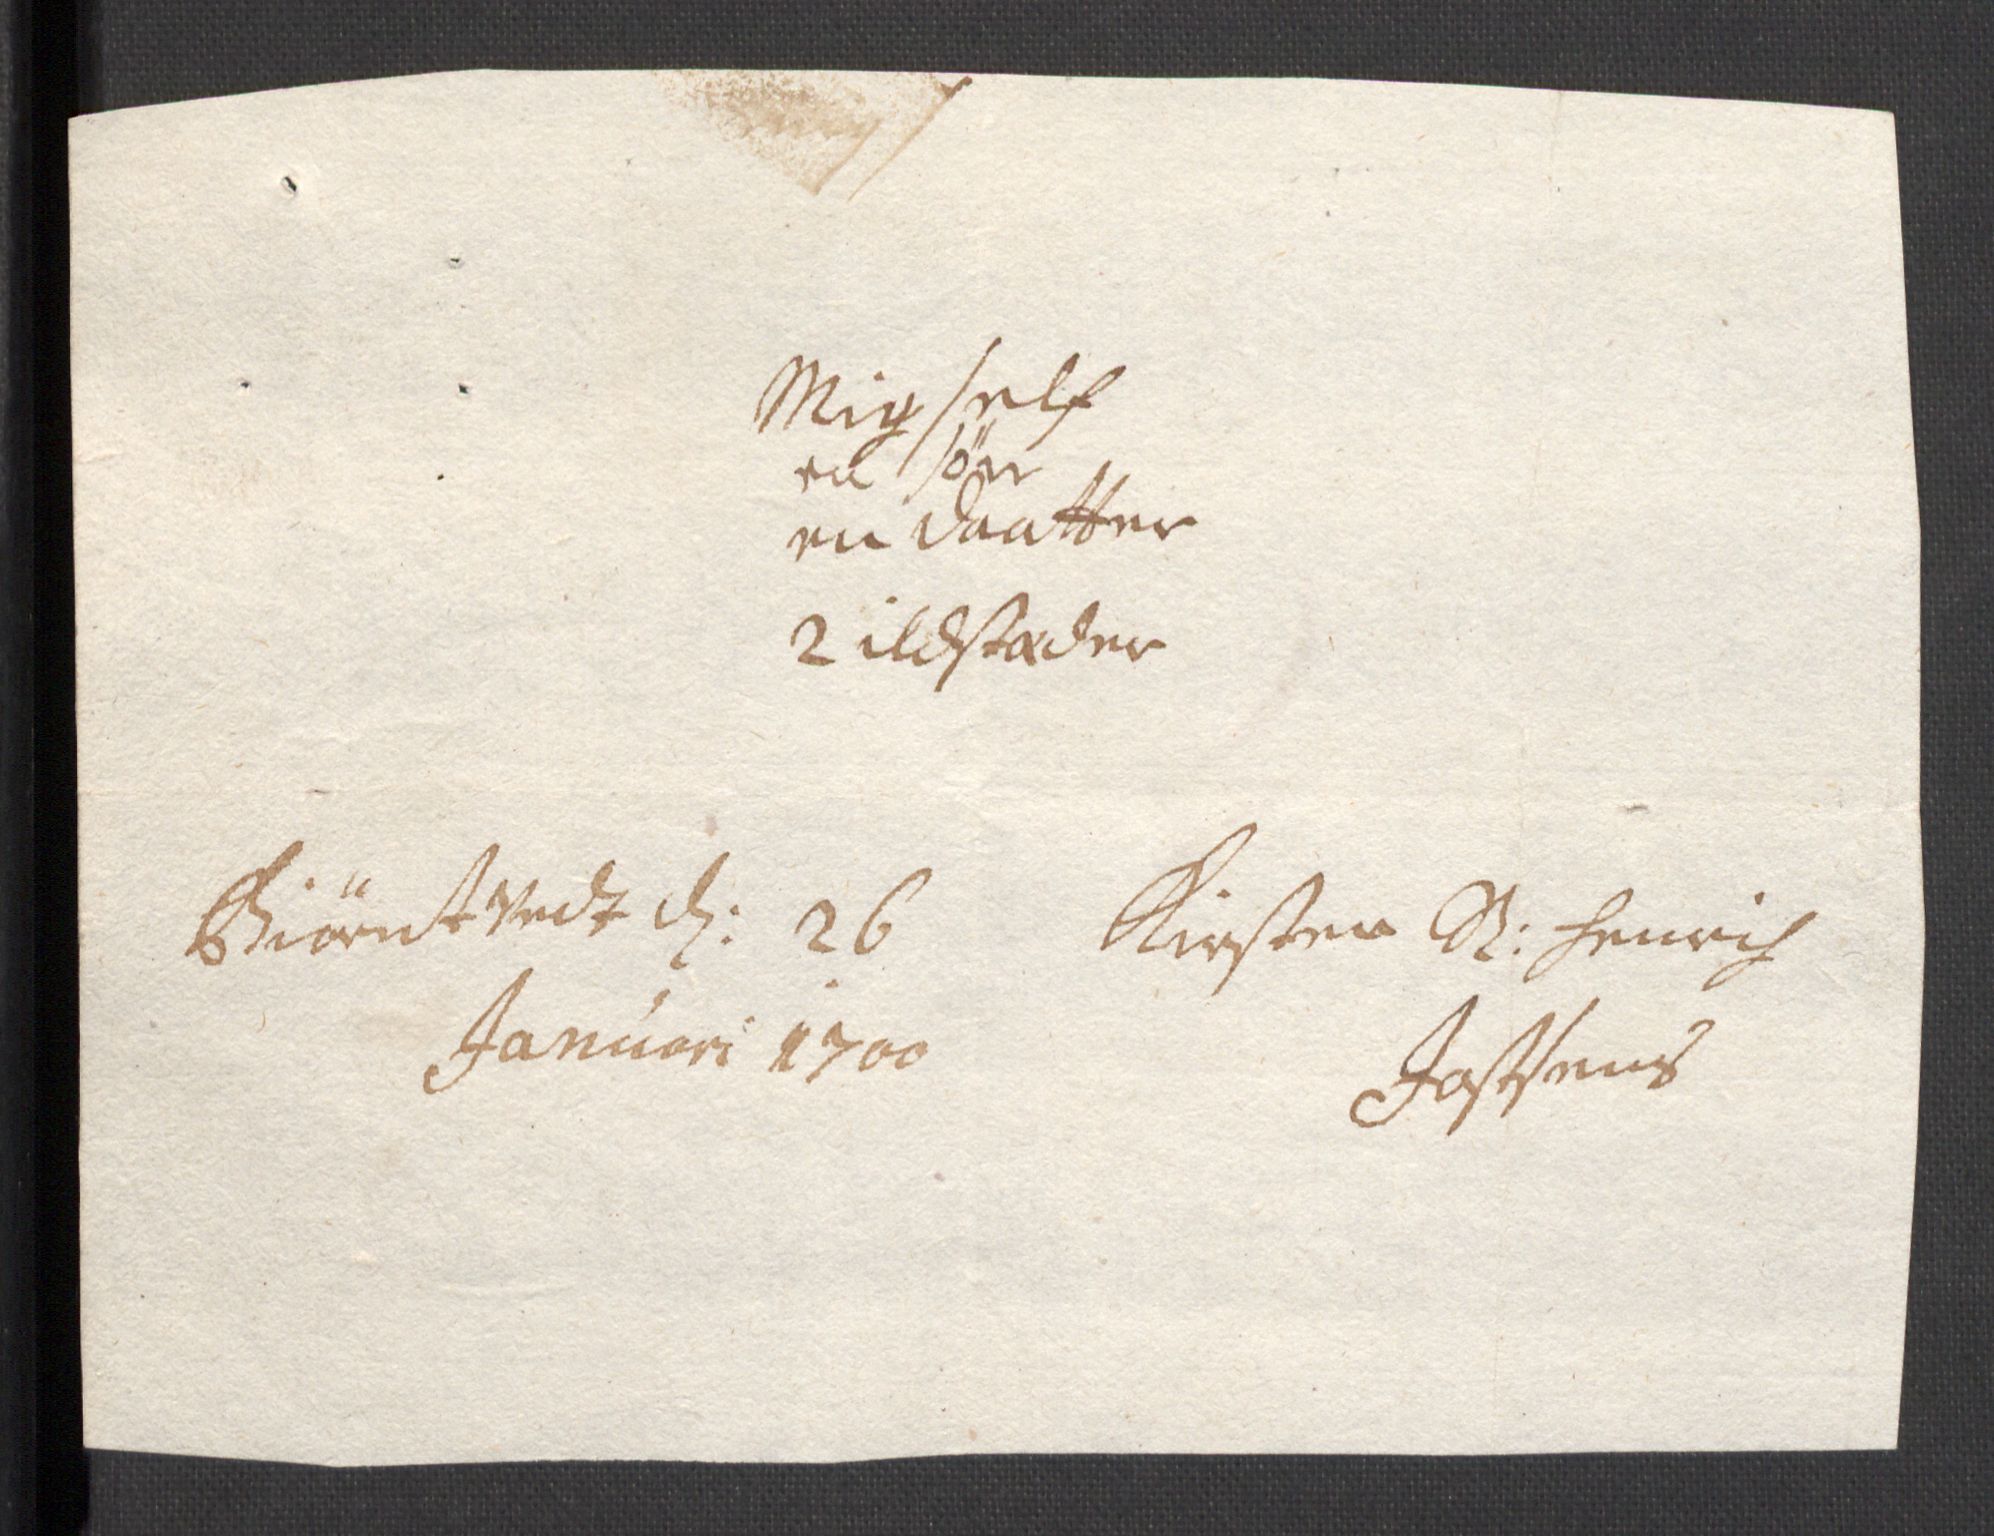 Mig self
en sön
en daatter
2 ildstæder
Biörntvedt d: 26
Januari 1700
Kirsten Sl: Henrich
Jostsens